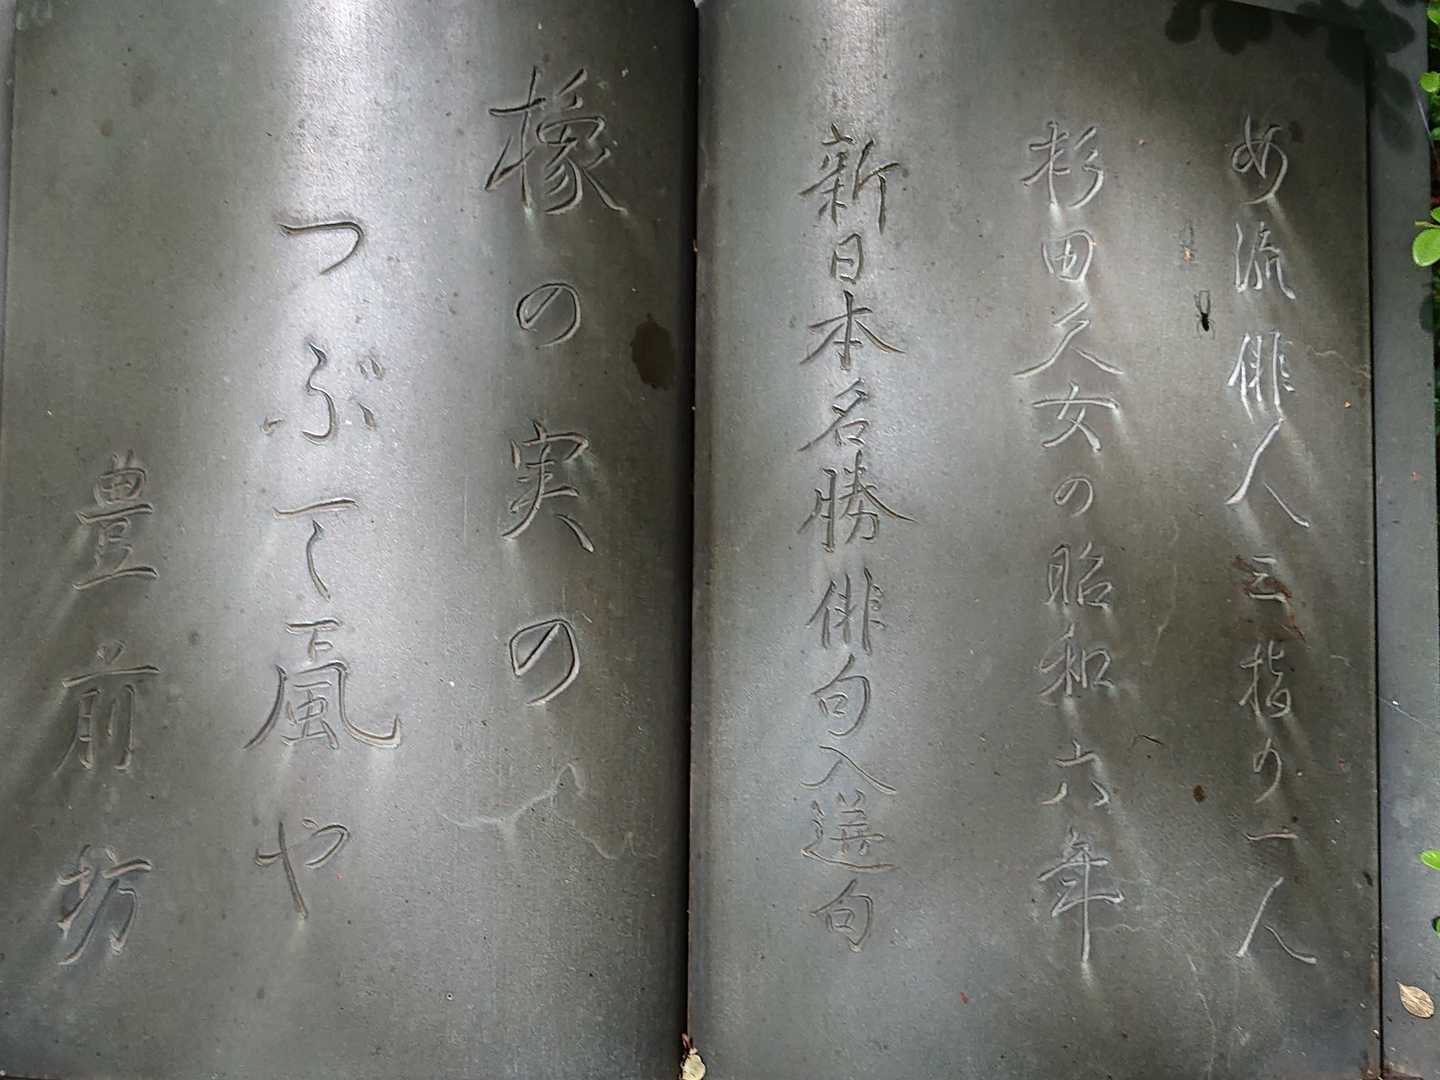 女流俳人三指の一人
杉田久女の昭和六年
新日本名勝俳句入選句
橡の実の
つぶて颪や
豊前坊